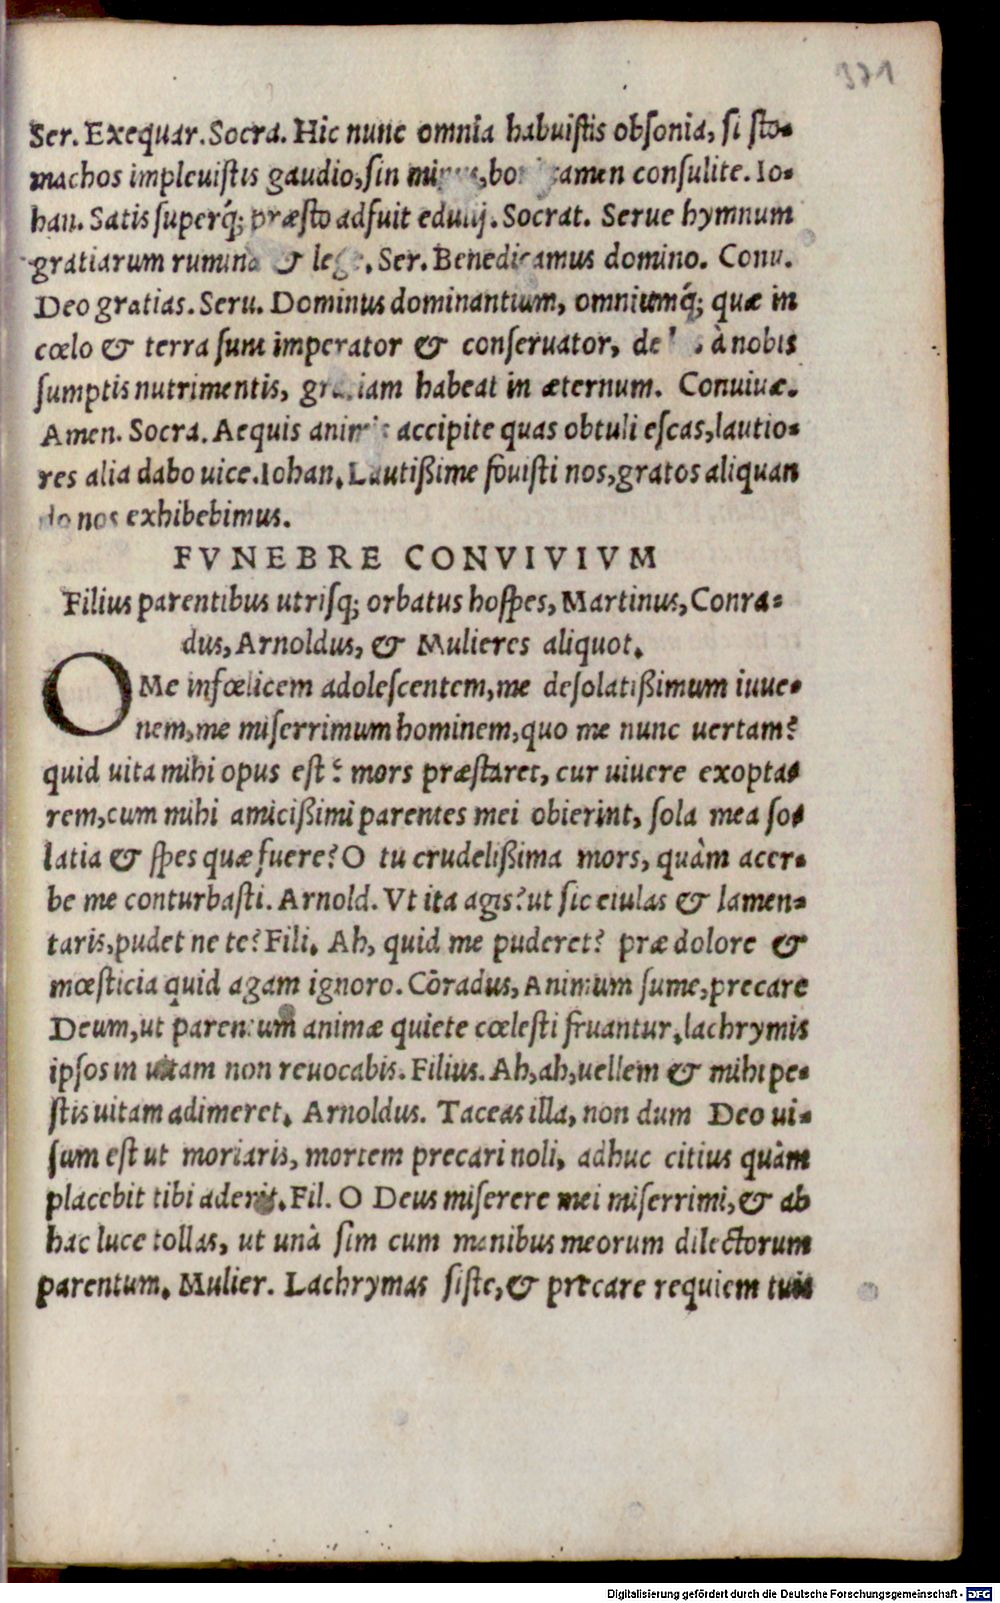 371
Ser. Exequar. Socra. Hic nunc omnia habuistis obsonia, si sto-
machos impleuistis gaudio, sin minus, boni tamen consulite. Io-
han. Satis superq́; præsto adfuit edulij. Socrat. Serue hymnum
gratiarum rumina & lege. Ser. Benedicamus domino. Conu.
Deo gratias. Seru. Dominus dominantium, omniumq́; quæ in
cœlo & terra sunt imperator & conseruator, de à nobis
sumptis nutrimentis, gratiam habeat in æternum. Conuiuæ.
Amen. Socra. Aequis animis accipite quas obtuli escas, lautio-
res alia dabo uice. Iohan. Lautißime fouisti nos, gratos aliquan
do nos exhibebimus.
FVNEBRE CONVIVIVM
Filius parentibus utrisq; orbatus hospes, Martinus, Conra-
dus, Arnoldus, & Mulieres aliquot.
O Me infœlicem adolescentem, me desolatißimum iuue-
nem, me miserrimum hominem, quo me nunc uertam?
quid uita mihi opus est? mors præstaret, cur uiuere exopta-
rem, cum mihi amicißimi parentes mei obierint, sola mea so-
latia & spes quæ fuere? O tu crudelißima mors, quàm acer-
be me conturbasti. Arnold. Vt ita agis? ut sic eiulas & lamen-
taris, pudet ne te? Fili. Ah, quid me puderet? præ dolore &
mœsticia quid agam ignoro. Cōradus, Animum sume, precare
Deum, ut parentum animæ quiete cœlesti fruantur. lachrymis
ipsos in uitam non reuocabis. Filius. Ah, ah, uellem & mihi pe-
stis uitam adimeret. Arnoldus. Taceas illa, non dum Deo ui-
sum est ut moriaris, mortem precari noli, adhuc citius quàm
placebit tibi aderit. Fil. O Deus miserere mei miserrimi, & ab
hac luce tollas, ut unà sim cum manibus meorum dilectorum
parentum. Mulier. Lachrymas siste, & precare requiem tuis
Digitalisierung gefördert durch die Deutsche Forschungsgemeinschaft - DFG